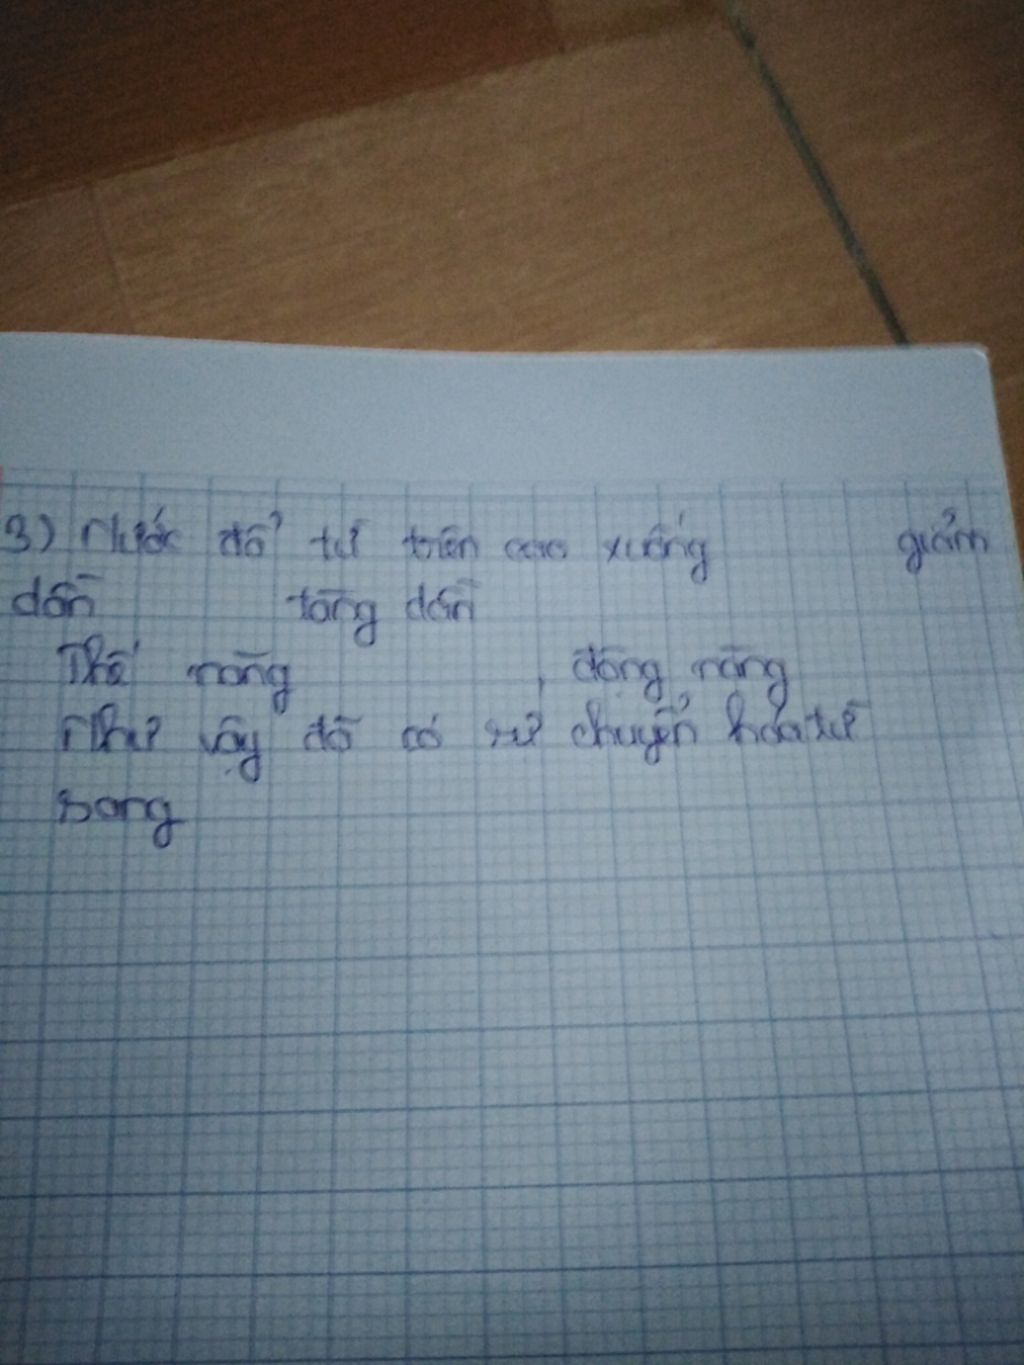 3) Nước đổ từ trên cao xuống giảm
dần tăng dần
Thế năng , động năng
Như vậy đã có sự chuyển hóa từ
sang